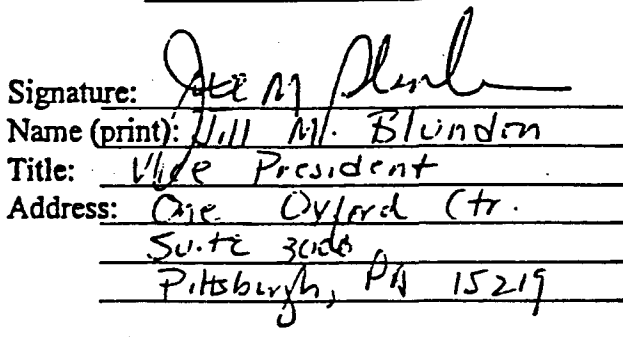 Signature: Jill M Blunden
Name (print): Jill M. Blunden
Title: Vice President
Address: One Oxford Ctr.
Suite 3000
Pittsburgh, PA 15219